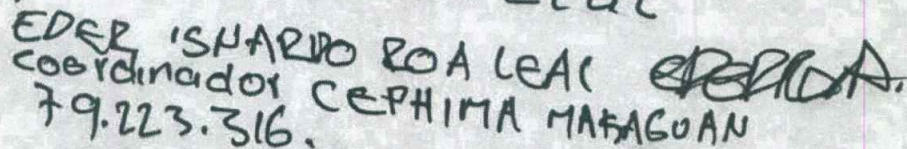 EDER ISNARDO ROA LEAL EDERROA.
Coordinador CEPHIMA MAKAGUAN
79.223.316.